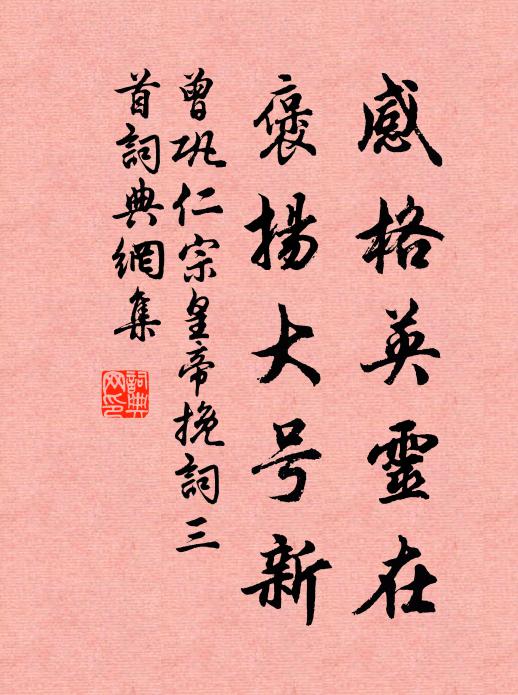 感格英靈在
褒揚大号新
曾巩仁宗皇帝挽詞三
首詞典網集
詞典
网印